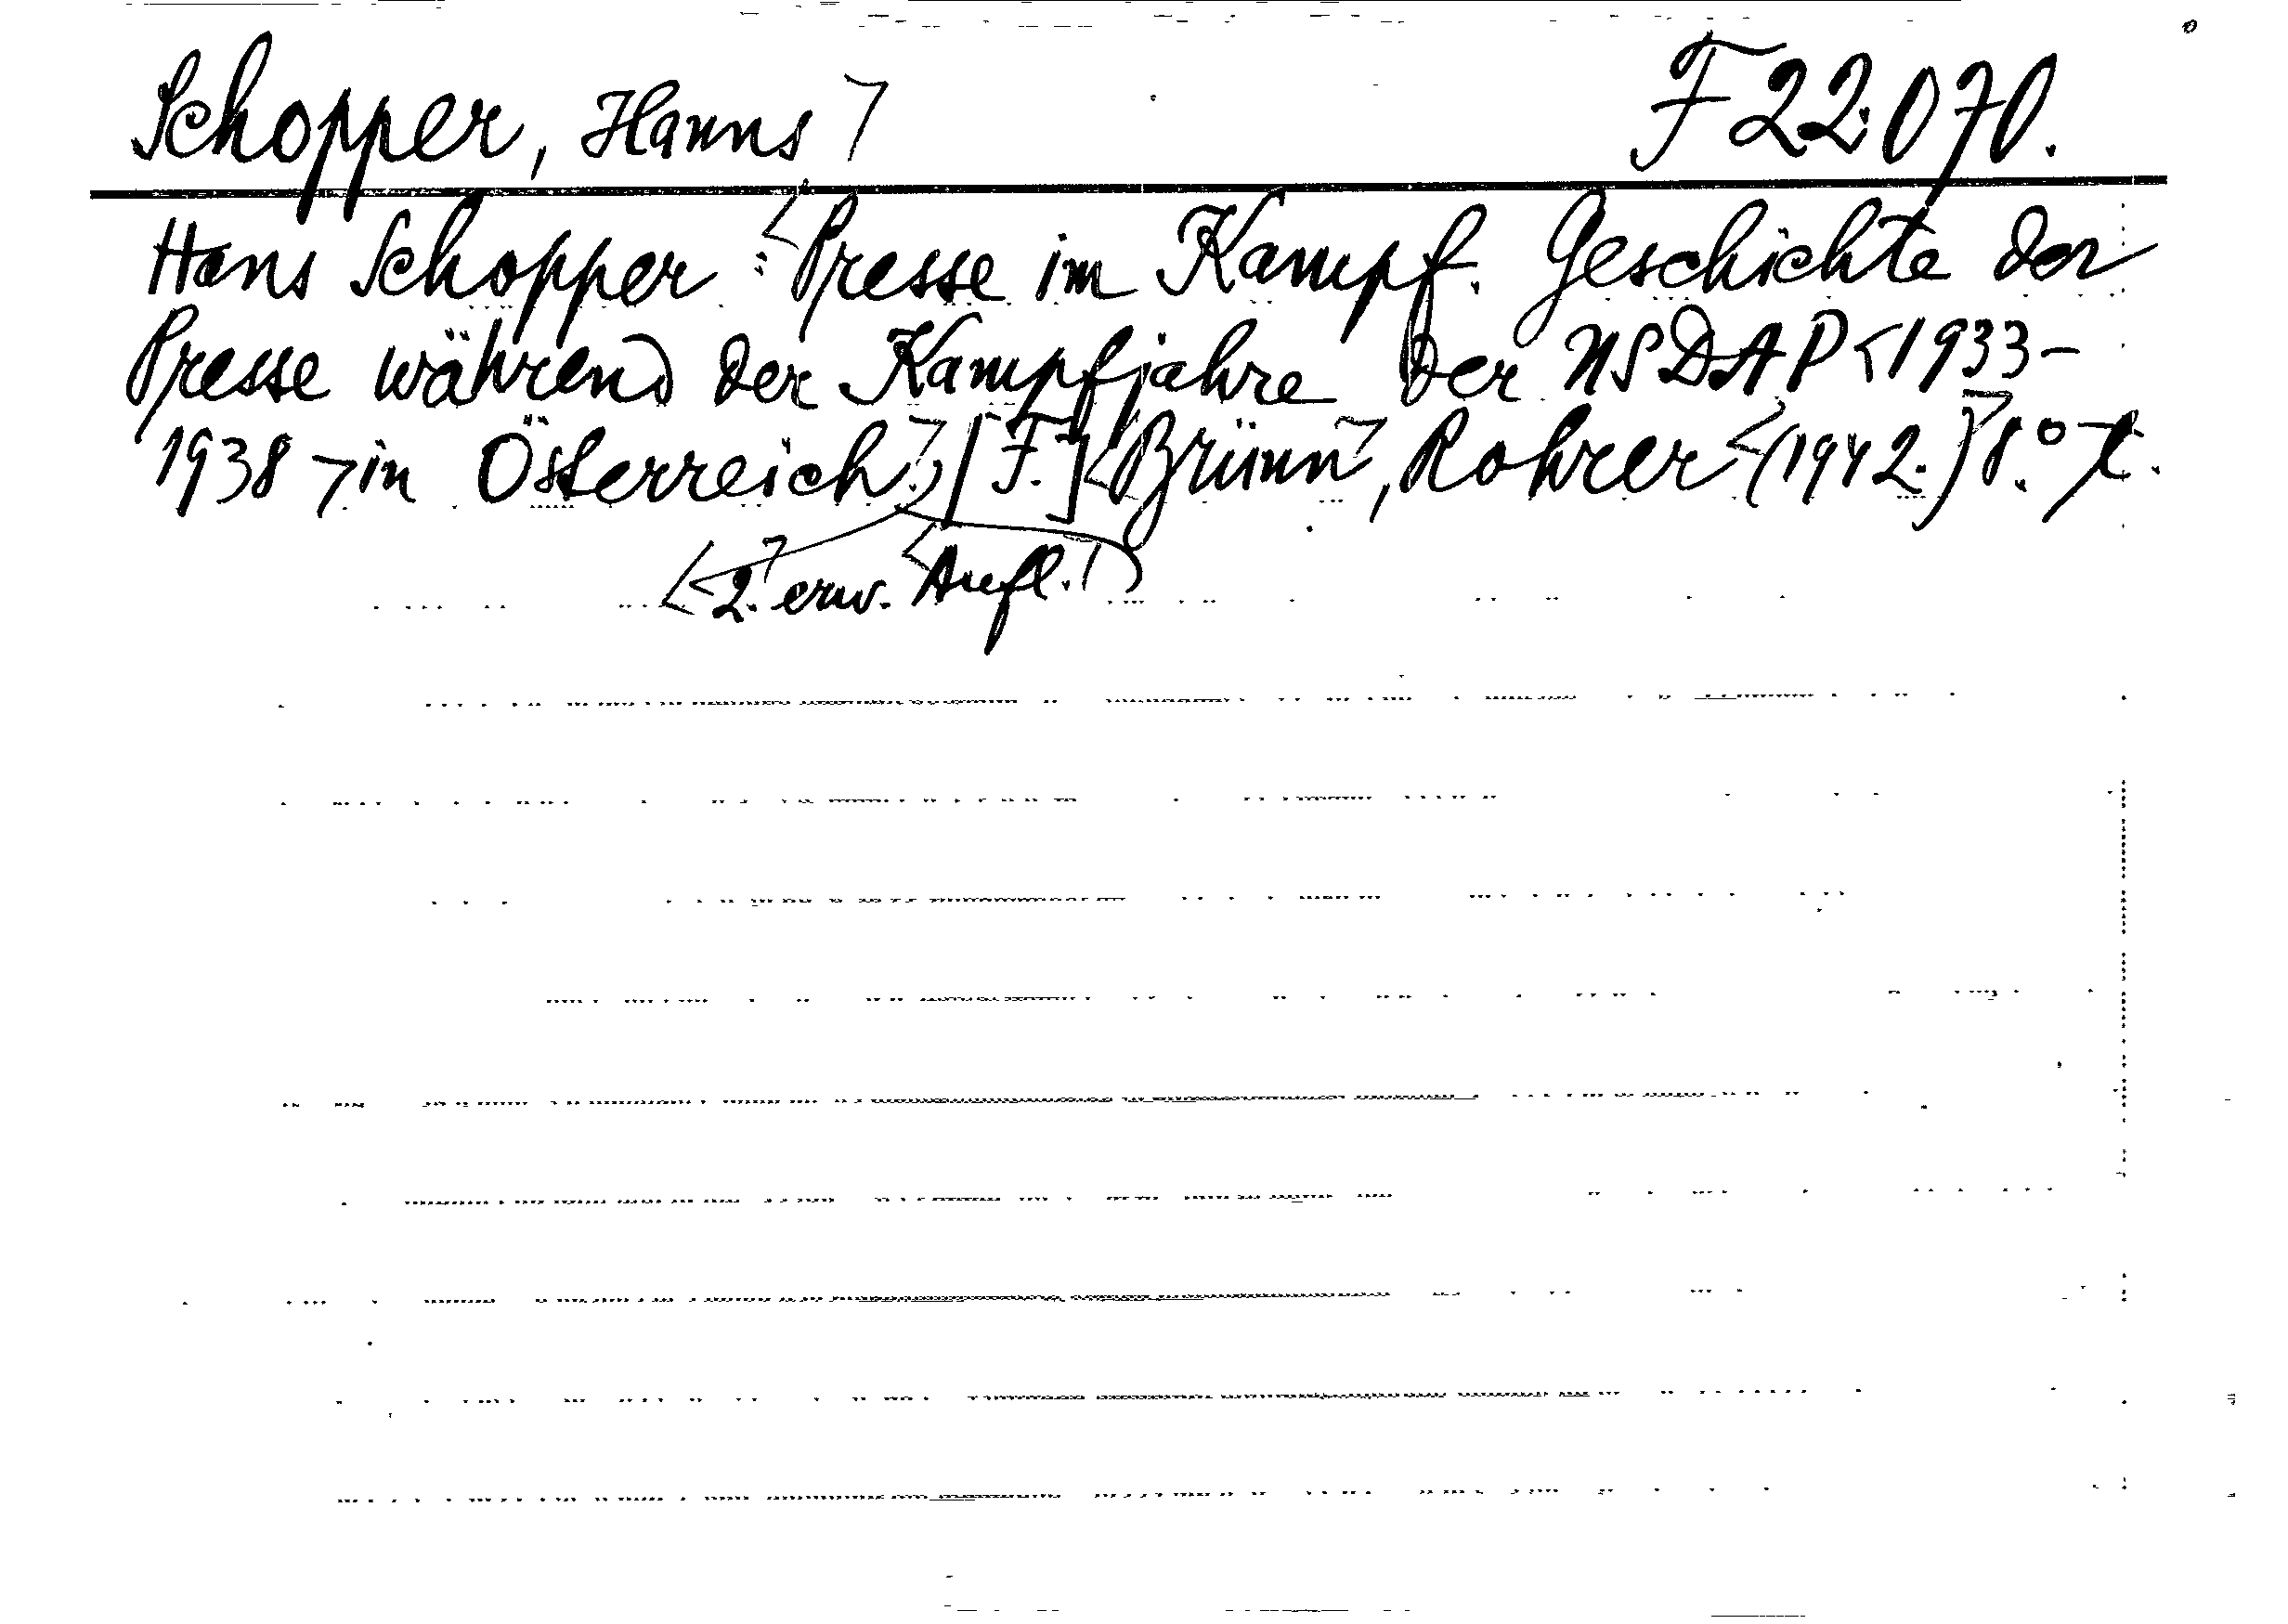 Schopper, Hanns ⟩ F 22.070.
Hans Schopper: <Presse im Kampf. Geschichte der
Presse während der Kampfjahre der NSDAP <1933-
1938> in Österreich.>) [F.] <Brünn>, Rohrer <(1942.)> 8.°
<2.> erw. <Aufl.>